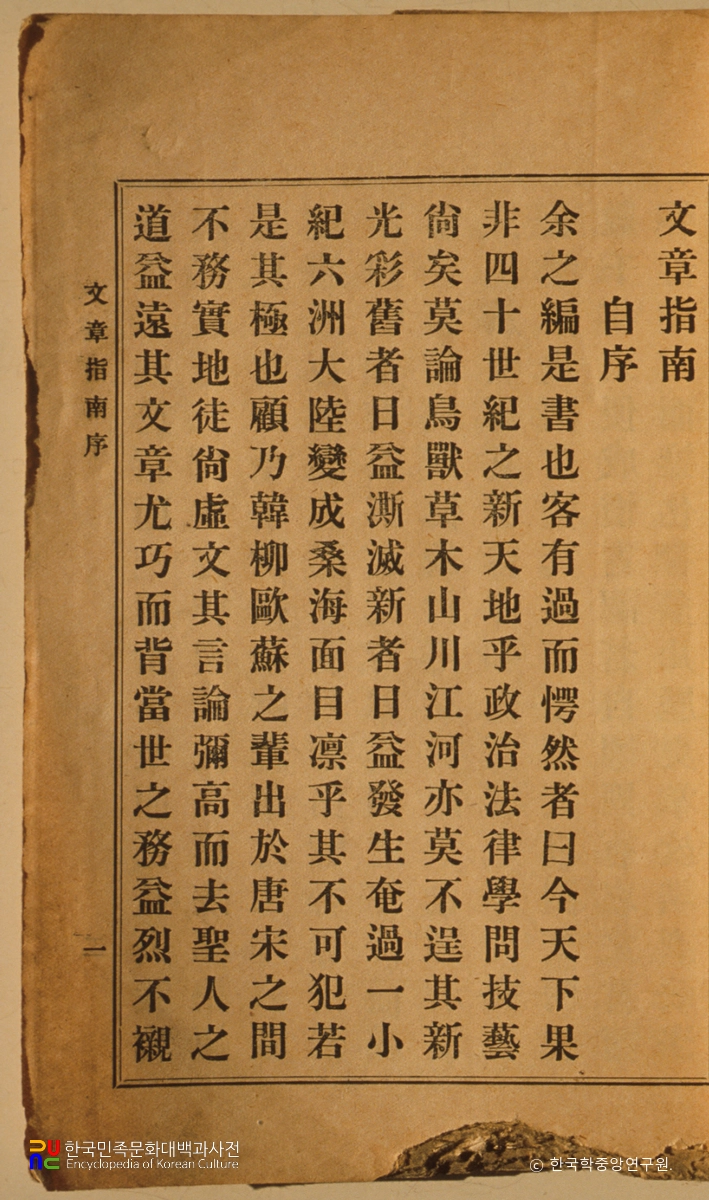 文章指南
自序
余之編是書也客有過而愕然者曰今天下果
非四十世紀之新天地乎政治法律學問技藝
尙矣莫論鳥獸草木山川江河亦莫不逞其新
光彩舊者日益澌滅新者日益發生奄過一小
紀六洲大陸變成桑海面目凛乎其不可犯若
是其極也顧乃韓柳歐蘇之輩出於唐宋之間
不務實地徒尙虛文其言論彌高而去聖人之
道益遠其文章尤巧而背當世之務益烈不襯
文章指南序
一
한국민족문화대백과사전
Encyclopedia of Korean Culture
© 한국학중앙연구원.